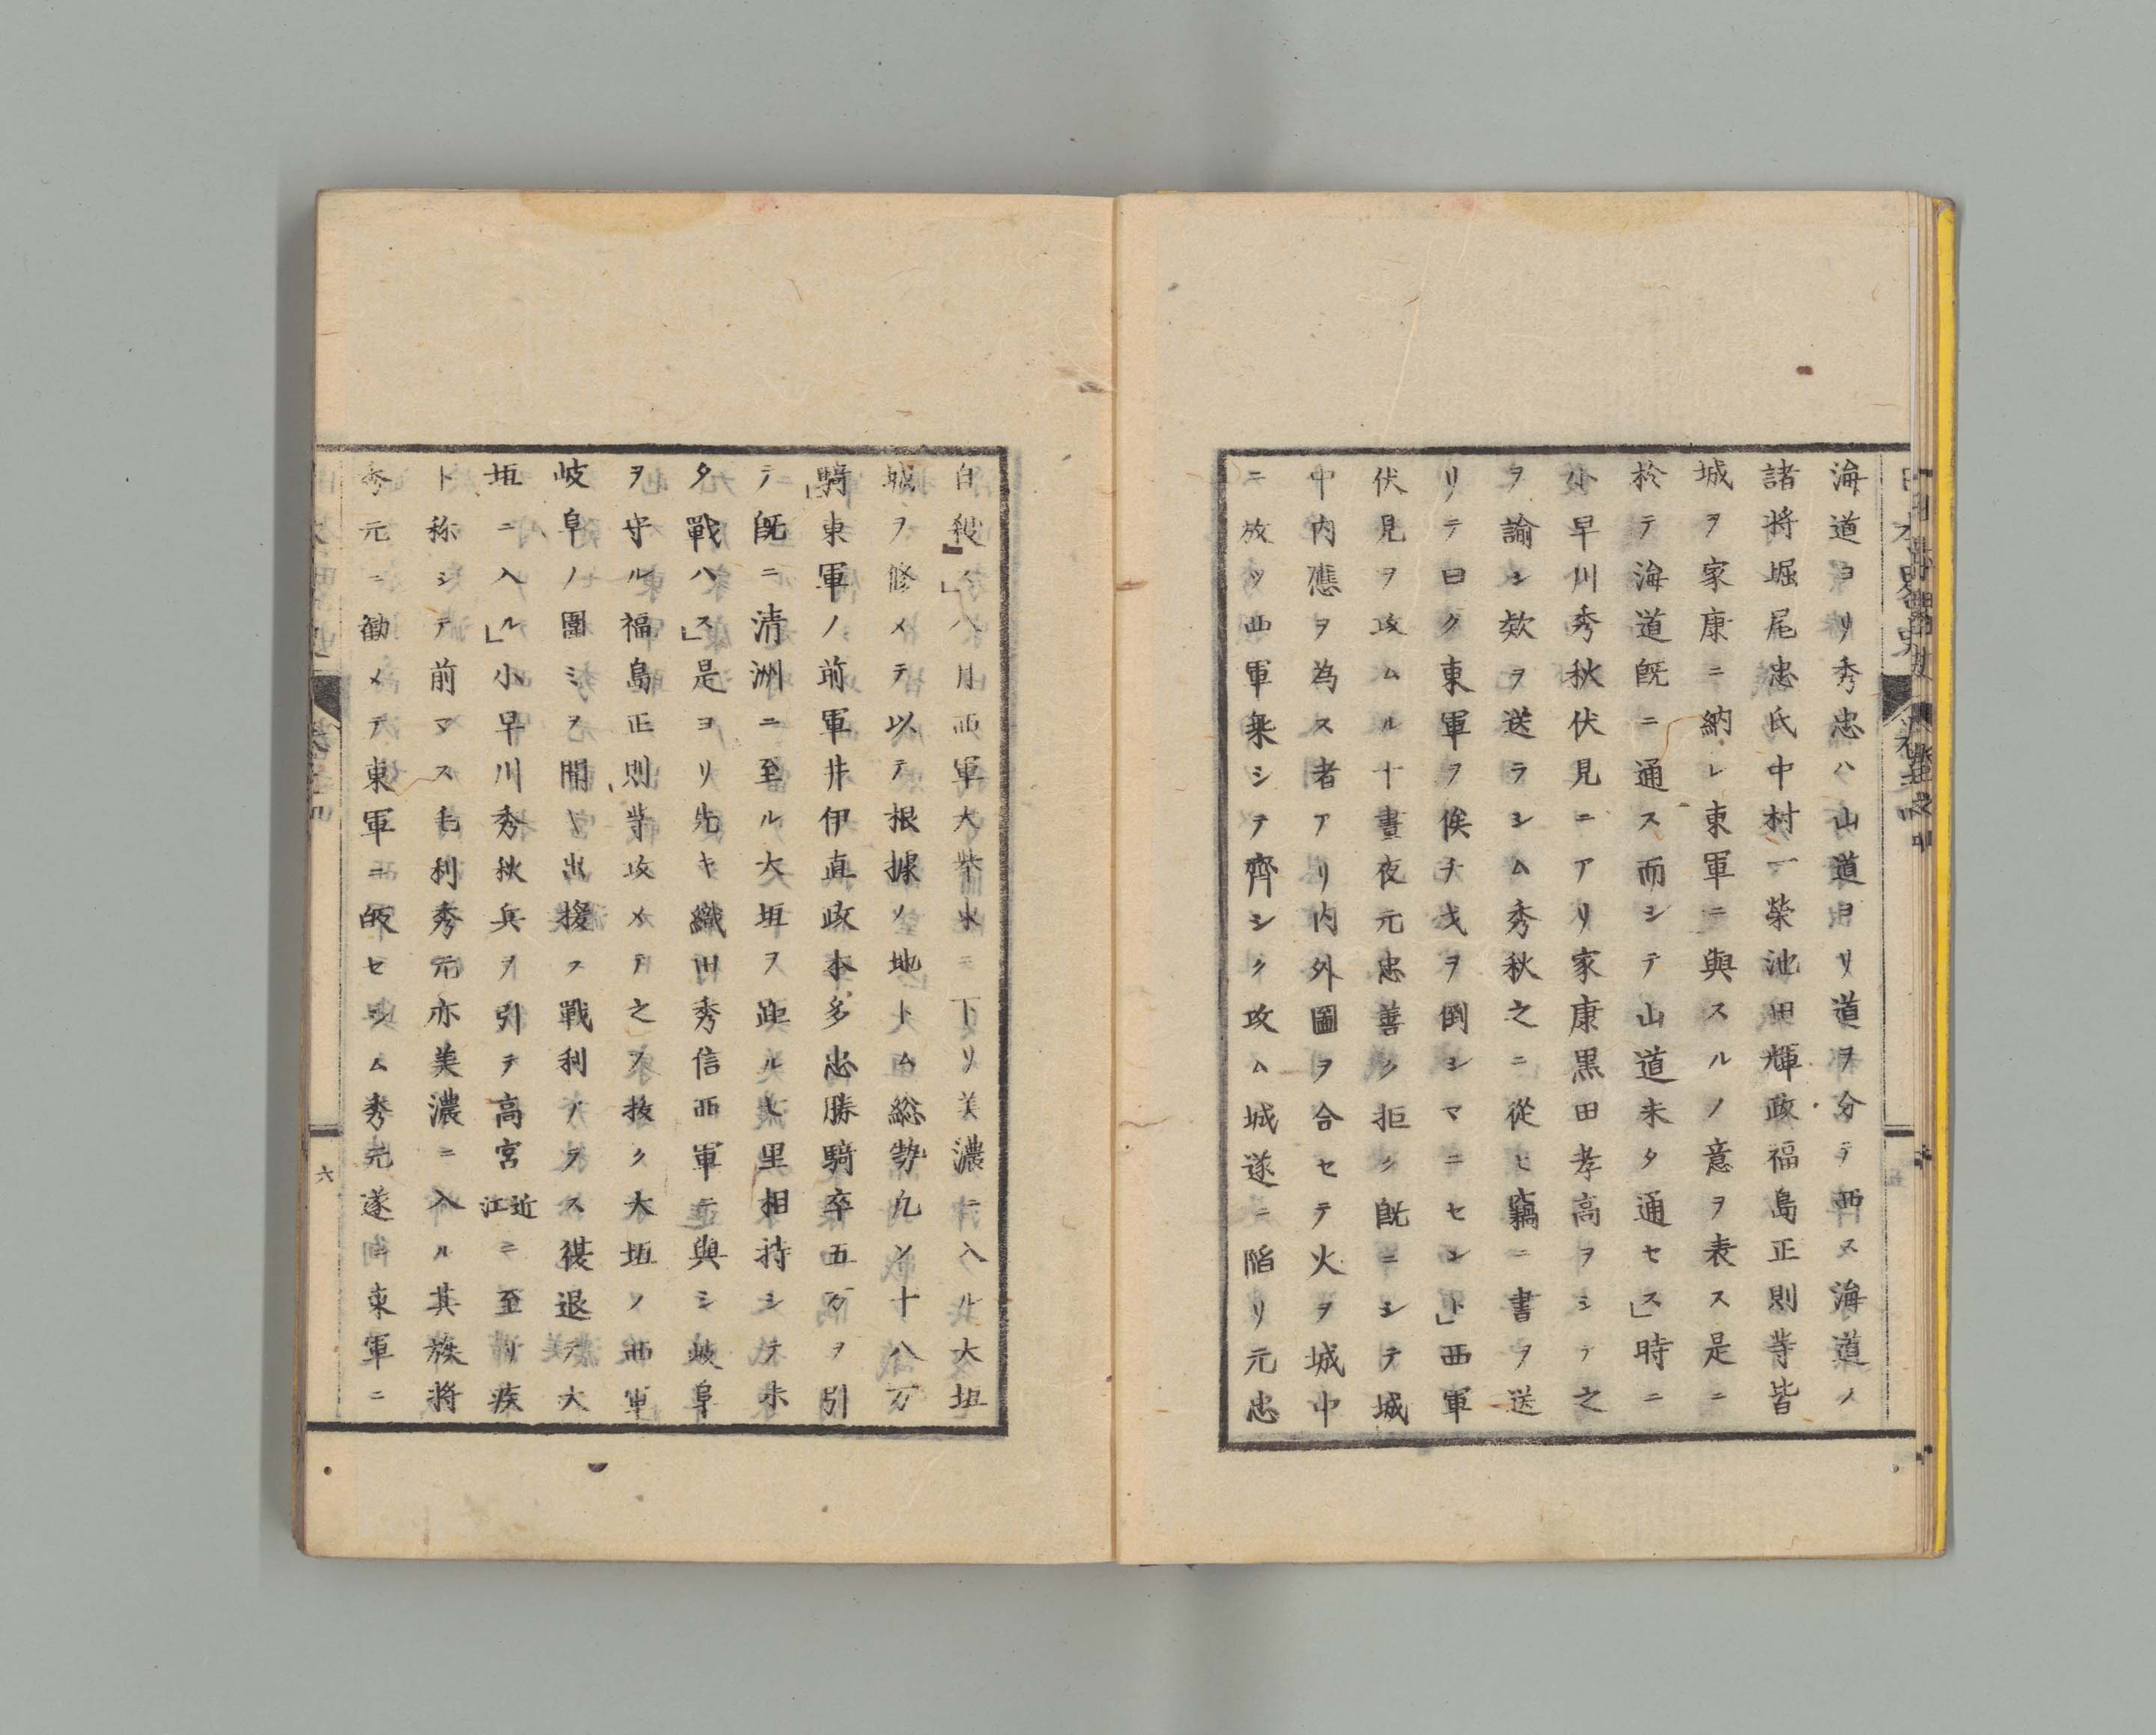 海道ヨリ秀忠ハ山道ヨリ道ヲ分テ西ス海道ノ
諸将堀尾忠氏中村一榮池田輝政福島正則等皆
城ヲ家康ニ納レ東軍ニ與スルノ意ヲ表ス是ニ
於テ海道既ニ通ス而シテ山道未タ通セス」時ニ
小早川秀秋伏見ニアリ家康黒田孝高ヲシテ之
ヲ諭シ款ヲ送ラシム秀秋之ニ從ヒ竊ニ書ヲ送
リテ曰ク東軍ヲ俟チ戈ヲ倒シマニセント」西軍
伏見ヲ攻ムル十晝夜元忠善ク拒ク既ニシテ城
中内應ヲ為ス者アリ内外圖ヲ合セテ火ヲ城中
ニ放ツ西軍乗シテ齊シク攻ム城遂ニ陥リ元忠
自殺ス」八月西軍大挙水ニ下リ美濃ニ入ル大垣
城ヲ修メテ以テ根據ノ地トム総勢凡ソ十八万
騎」東軍ノ前軍井伊直政本多忠勝騎卒五万ヲ引
テ既ニ清洲ニ至ル大垣ヲ距ル七里相持シテ未
タ戰ハス」是ヨリ先キ織田秀信西軍ニ與シ岐阜
ヲ守ル福島正則等攻メテ之ヲ抜ク大垣ノ西軍
岐阜ノ圍ミヲ聞ソ出援ス戰利アラス復退テ大
垣ニ入ル」小早川秀秋兵ヲ引テ高宮近江ニ至リ疾
ト称シテ前マス毛利秀元亦美濃ニ入ル其族将
秀元ニ勧メテ東軍ニ皈セシム秀元遂ニ東軍ニ
六